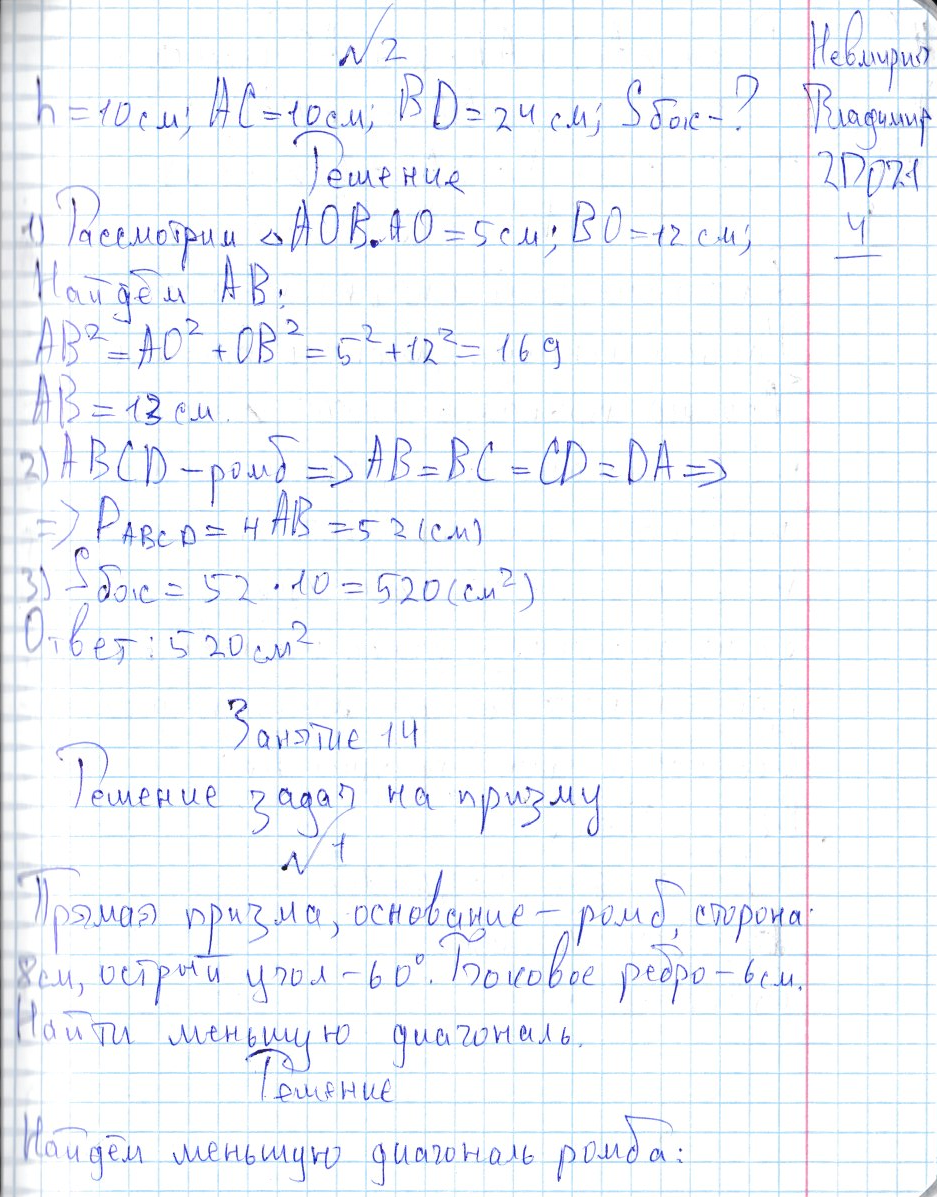 №2
h = 10 см; AC = 10 см; BD = 24 см; Sбок - ?
Решение
1) Рассмотрим △AOB. AO = 5 см; BO = 12 см;
Найдём AB:
AB² = AO² + OB² = 5² + 12² = 169
AB = 13 см.
2) ABCD - ромб => AB = BC = CD = DA =>
=> PABCD = 4AB = 52 (см)
3) Sбок = 52 · 10 = 520 (см²)
Ответ: 520 см²
Занятие 14
Решение задач на призму
№1
Прямая призма, основание - ромб, сторона
8см, острый угол - 60°. Боковое ребро - 6см.
Найти меньшую диагональ.
Решение
Найдём меньшую диагональ ромба:
Владимир
2D021
4